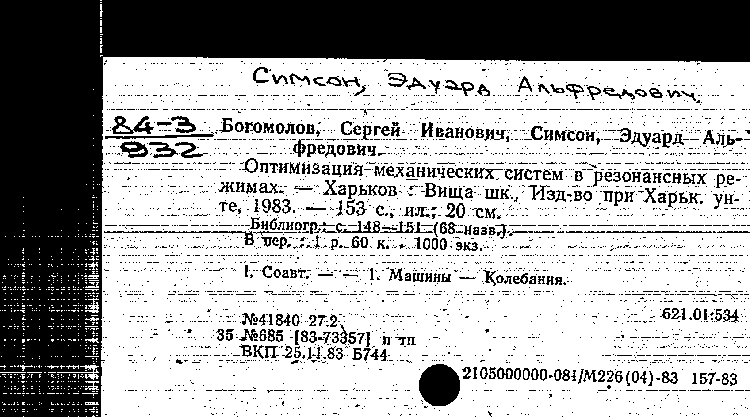 Симсон, Эдуард Альфредович
84-3
932
Богомолов, Сергей Иванович, Симсон, Эдуард Аль-
фредович.
Оптимизация механических систем в резонансных ре-
жимах. — Харьков : Вища шк., Изд-во при Харьк. ун-
те, 1983. — 153 с., ил.; 20 см.
Библиогр.: с. 148—151 (68 назв.).
В пер. : 1 р. 60 к. , 1000 экз.
I. Соавт. — — 1. Машины — Колебания.
621.01:534
№41840 27.2
35 №685 [83-73357] п тп
ВКП 25.11.83 Б744
2105000000-084/М226(04)-83 157-83